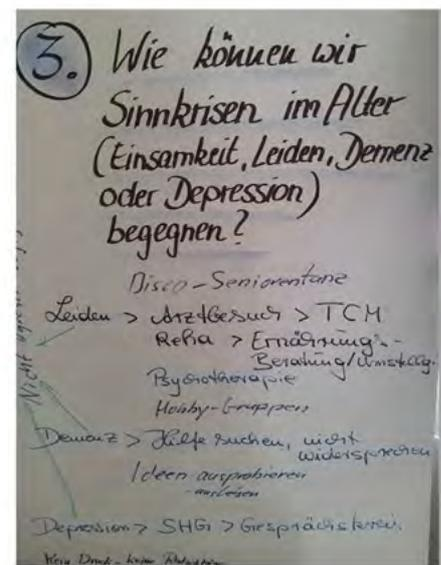 3. Wie können wir
Sinnkrisen im Alter
(Einsamkeit, Leiden, Demenz
oder Depression)
begegnen?
Disco-Seniorentanz
Leiden > Arztbesuch > TCM
Reha > Ernährungs-
Beratung/Umstellg.
Psychotherapie
Hobby-Gruppen
Demenz > Hilfe suchen, nicht
widersprechen
Ideen ausprobieren
- ausleben
Depression > SHG > Gesprächskreis
Nicht
Kein Druck - keine